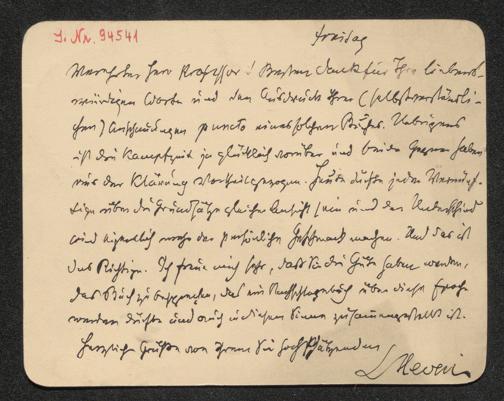 J. Nr. 94541
Freitag
Verehrter Herr Professor! Besten Dank für Ihre liebens-
würdigen Worte und den Ausdruck Ihrer (selbstverständli-
chen) Anschauungen puncto eines solchen Buches. Uebrigens
ist die Kampfzeit ja glücklich vorüber und beide Gegner haben
aus der Klärung Vortheil gezogen. Heute dürfte jeder Vernünf-
tige über die Grundsätze gleicher Ansicht sein und den Unterschied
wird eigentlich mehr der persönliche Geschmack machen. Und das ist
das Richtige. Ich freue mich sehr, daß Sie die Güte haben werden,
das Buch zu besprechen, das ein Nachschlagebuch über diese Epoche
werden dürfte und auch in diesem Sinne zusammengestellt ist.
Herzliche Grüße von Ihrem Sie hochschätzenden
L Hevesi